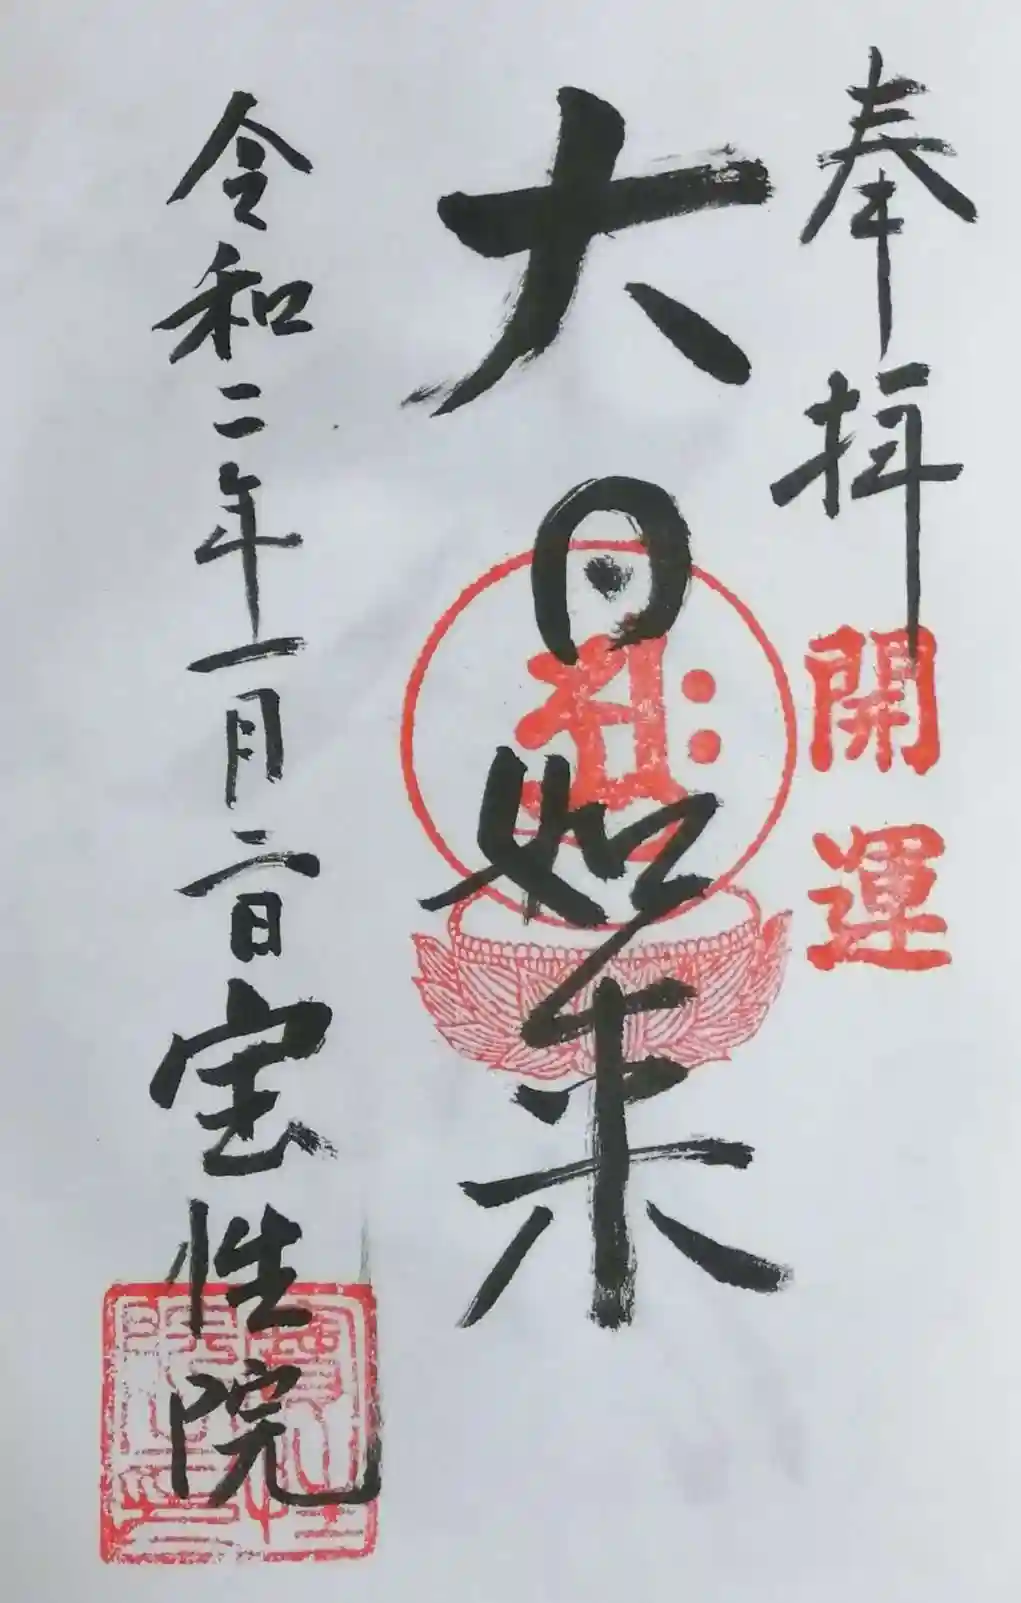 奉拝
開運
大日如来
令和二年一月二日宝性院